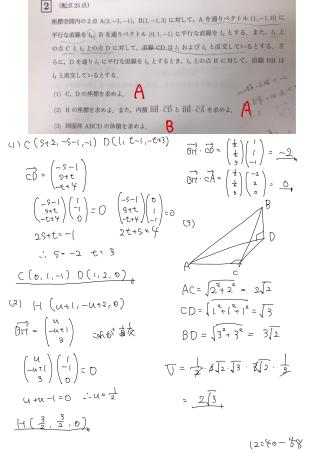 2 (配点25点)
座標空間内の2点A(2,-1,-1), B(1,-1,3)に対して, Aを通りベクトル(1,-1,0)に
平行な直線をl₁, Bを通りベクトル(0,1,-1)に平行な直線をl₂とする. また, l₁上
の点Cとl₂上の点Dに対して, 直線CDはl₁およびl₂と直交しているとする. さ
らに, Dを通りl₁に平行な直線をl₃とするとき, l₃上の点Hに対して, 直線BHは
l₃と直交しているとする.
(1) C, Dの座標を求めよ. A
(2) Hの座標を求めよ. また, 内積BH・CDとBH・CAを求めよ. A
(3) 四面体ABCDの体積を求めよ. B
(1) C(s+2, -s-1, -1) D(1, t-1, -t+3)
CD = (-s-1, s+t, -t+4)
(-s-1, s+t, -t+4)(1, -1, 0) = 0 (-s-1, s+t, -t+4)(0, 1, -1) = 0
2s+t=-1 2t+s=4
∴ s=-2 t=3
C(0,1,-1) D(1,2,0)
(2) H(u+1, -u+2, 0)
BH = (u, -u+1, 3)
(u, -u+1, 3)(1, -1, 0) = 0
u+u-1=0 ∴u=1/2
H(3/2, 3/2, 0)
BH・CD = (1/2, 1/2, 3)(1, 1, -1) = -2
BH・CA = (1/2, 1/2, 3)(-2, 2, 0) = 0
(3)
B
D
A
C
AC=√2²+2² = 2√2
CD=√1²+1²+1² = √3
BD=√3²+3² = 3√2
V = 1/2・2√2・√3・3√2・1/2
= 2√3
12=40-48